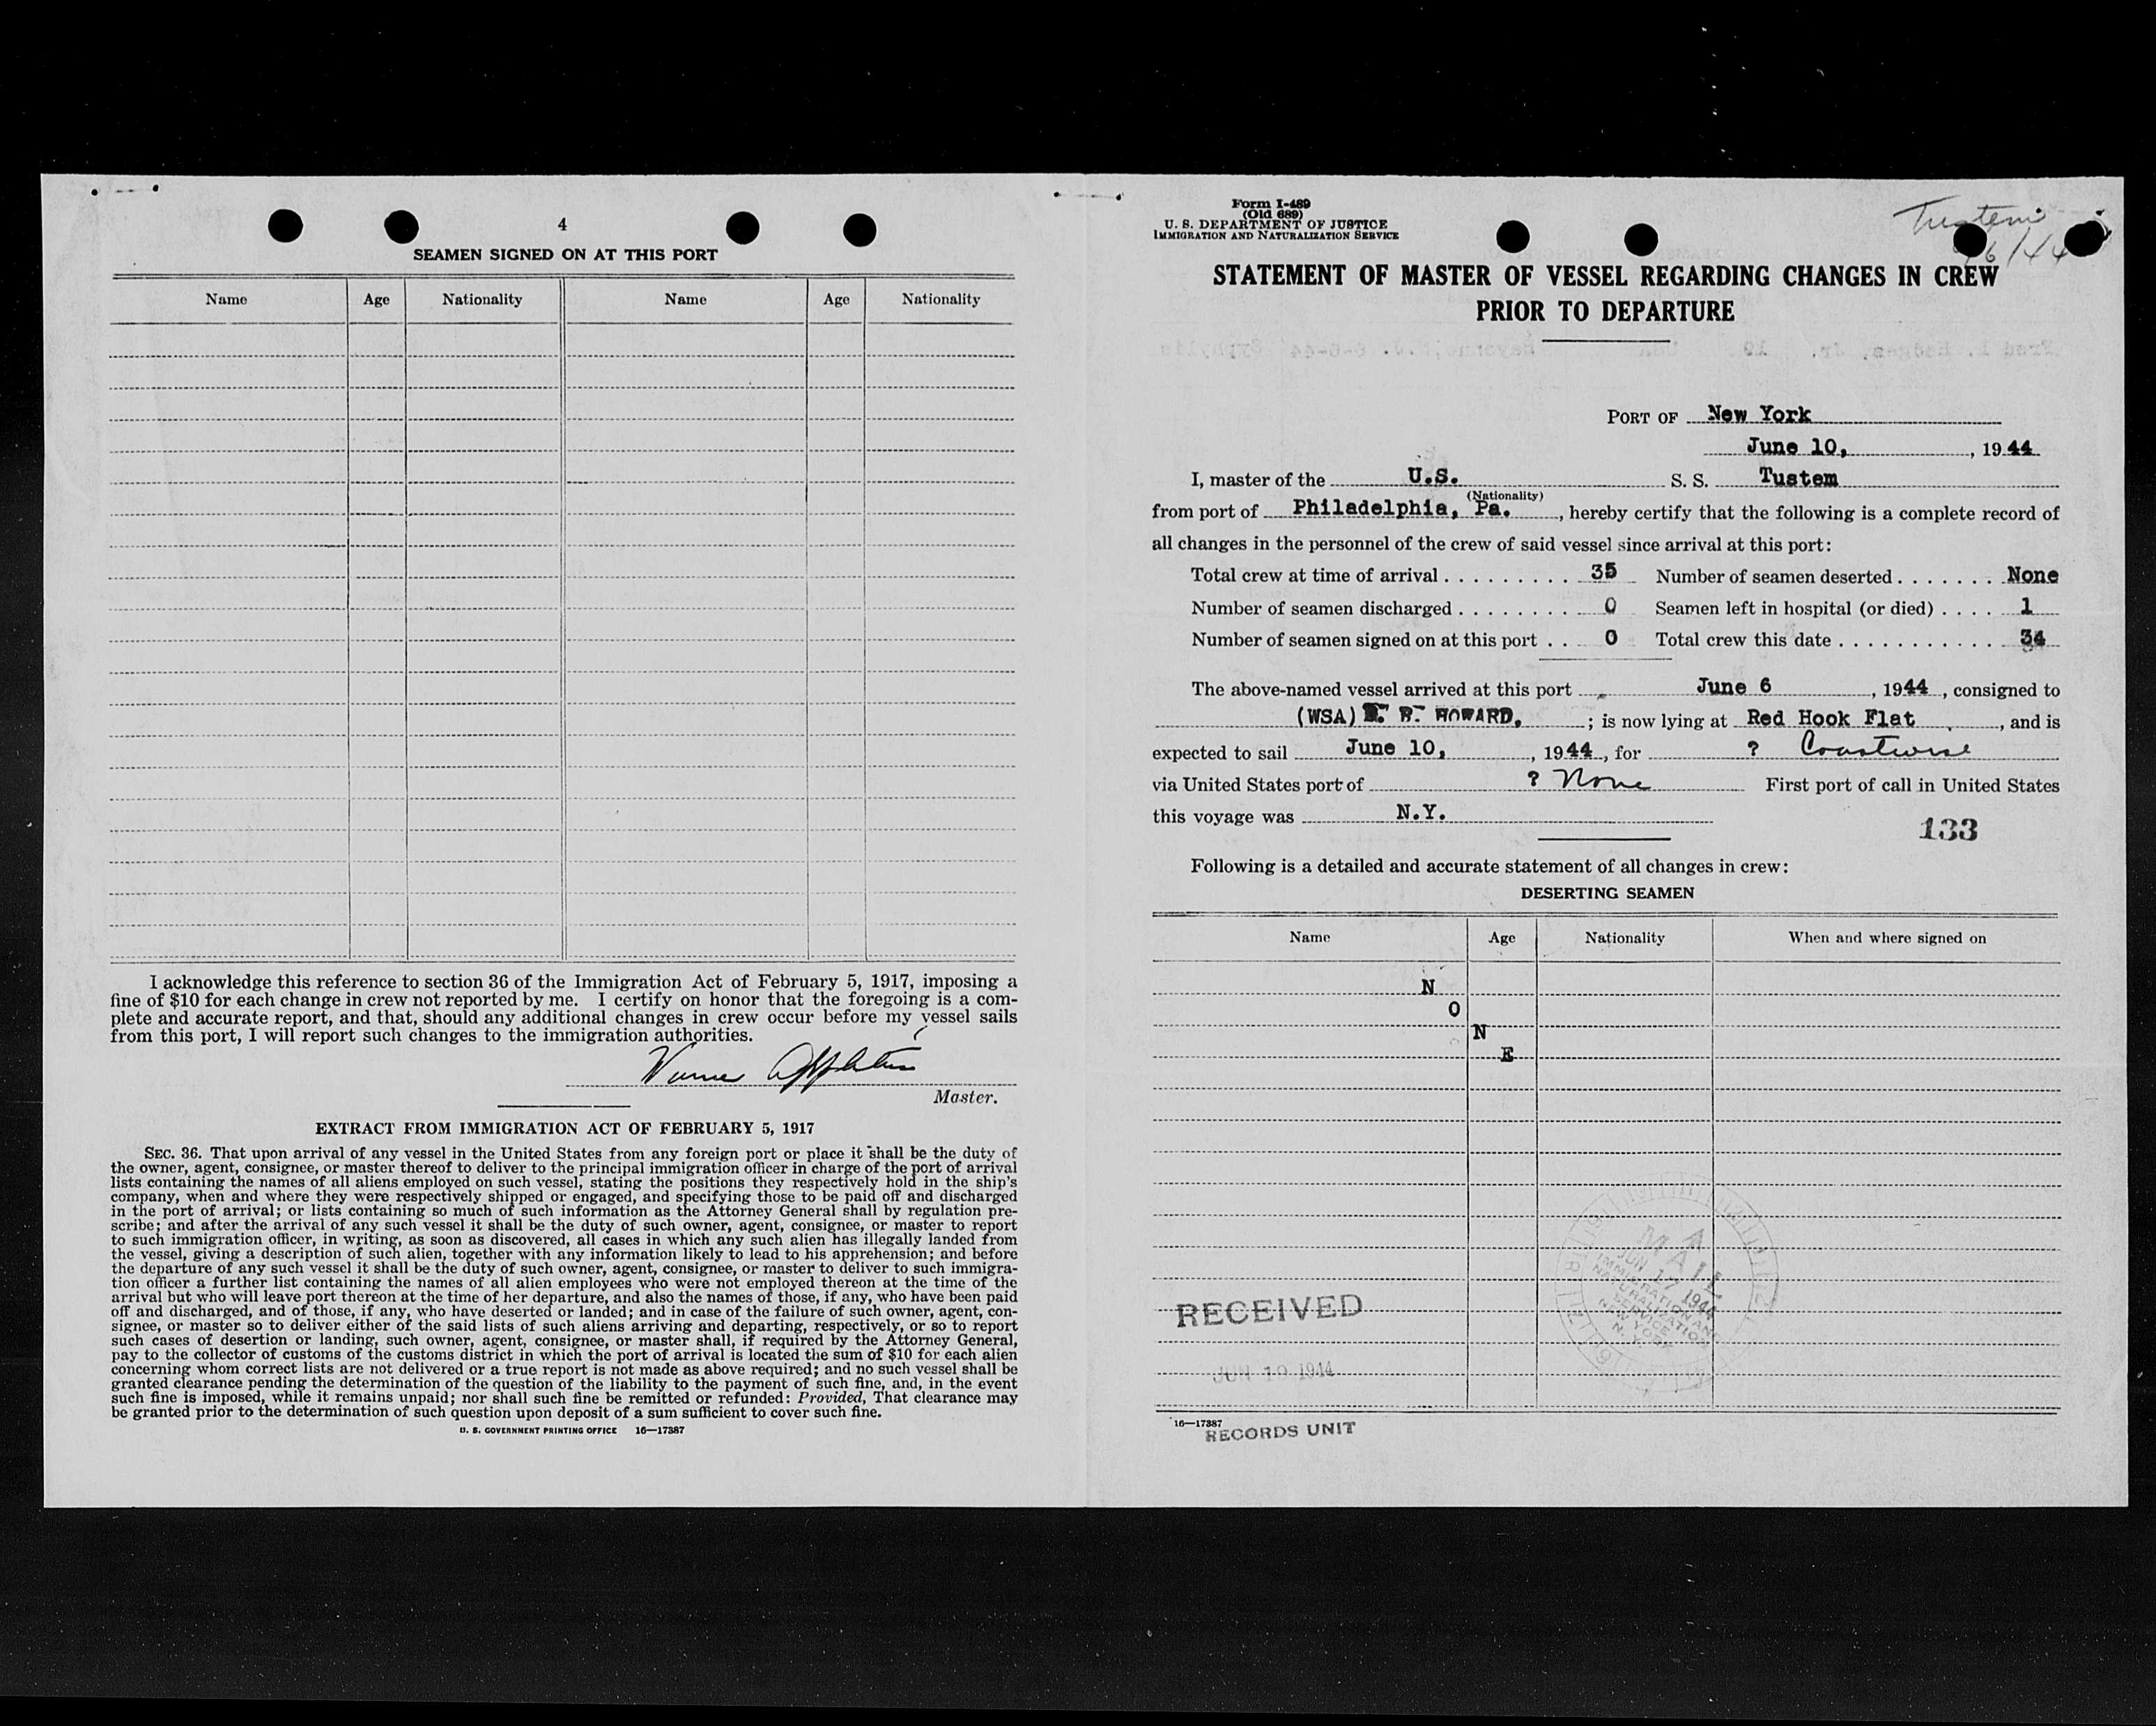 4
SEAMEN SIGNED ON AT THIS PORT
Name Age Nationality Name Age Nationality
I acknowledge this reference to section 36 of the Immigration Act of February 5, 1917, imposing a
fine of $10 for each change in crew not reported by me. I certify on honor that the foregoing is a com-
plete and accurate report, and that, should any additional changes in crew occur before my vessel sails
from this port, I will report such changes to the immigration authorities.
Master.
EXTRACT FROM IMMIGRATION ACT OF FEBRUARY 5, 1917
SEC. 36. That upon arrival of any vessel in the United States from any foreign port or place it shall be the duty of
the owner, agent, consignee, or master thereof to deliver to the principal immigration officer in charge of the port of arrival
lists containing the names of all aliens employed on such vessel, stating the positions they respectively hold in the ship's
company, when and where they were respectively shipped or engaged, and specifying those to be paid off and discharged
in the port of arrival; or lists containing so much of such information as the Attorney General shall by regulation pre-
scribe; and after the arrival of any such vessel it shall be the duty of such owner, agent, consignee, or master to report
to such immigration officer, in writing, as soon as discovered, all cases in which any such alien has illegally landed from
the vessel, giving a description of such alien, together with any information likely to lead to his apprehension; and before
the departure of any such vessel it shall be the duty of such owner, agent, consignee, or master to deliver to such immigra-
tion officer a further list containing the names of all alien employees who were not employed thereon at the time of the
arrival but who will leave port thereon at the time of her departure, and also the names of those, if any, who have been paid
off and discharged, and of those, if any, who have deserted or landed; and in case of the failure of such owner, agent, con-
signee, or master so to deliver either of the said lists of such aliens arriving and departing, respectively, or so to report
such cases of desertion or landing, such owner, agent, consignee, or master shall, if required by the Attorney General,
pay to the collector of customs of the customs district in which the port of arrival is located the sum of $10 for each alien
concerning whom correct lists are not delivered or a true report is not made as above required; and no such vessel shall be
granted clearance pending the determination of the question of the liability to the payment of such fine, and, in the event
such fine is imposed, while it remains unpaid; nor shall such fine be remitted or refunded: Provided, That clearance may
be granted prior to the determination of such question upon deposit of a sum sufficient to cover such fine.
U. S. GOVERNMENT PRINTING OFFICE 16—17387
Form I-489
(Old 689)
U. S. DEPARTMENT OF JUSTICE
IMMIGRATION AND NATURALIZATION SERVICE
6/44
STATEMENT OF MASTER OF VESSEL REGARDING CHANGES IN CREW
PRIOR TO DEPARTURE
PORT OF New York
June 10, , 1944
I, master of the U.S. S. S. Tustem
(Nationality)
from port of Philadelphia, Pa. , hereby certify that the following is a complete record of
all changes in the personnel of the crew of said vessel since arrival at this port:
Total crew at time of arrival 35 Number of seamen deserted None
Number of seamen discharged 0 Seamen left in hospital (or died) 1
Number of seamen signed on at this port 0 Total crew this date 34
The above-named vessel arrived at this port June 6 , 1944 , consigned to
(WSA) B. HOWARD, ; is now lying at Red Hook Flat , and is
expected to sail June 10, , 1944 , for ? Coastwise
via United States port of ? None First port of call in United States
this voyage was N.Y.
133
Following is a detailed and accurate statement of all changes in crew:
DESERTING SEAMEN
Name Age Nationality When and where signed on
N
O
N
E
MAIL
JUN 17 1944
IMMIGRATION AND
NATURALIZATION
SERVICE
NEW YORK
N. Y.
RECEIVED
JUN 19 1944
16—17387
RECORDS UNIT